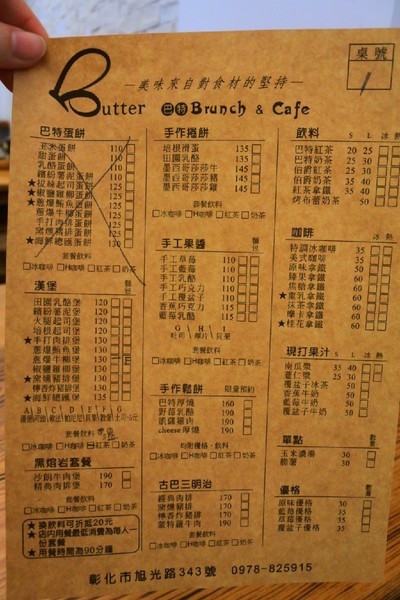 美味來自對食材的堅持
Butter 巴特 Brunch & Cafe
桌號
巴特蛋餅
玉米蛋餅 110
甜蛋餅 110
乳酪蛋餅 110
繽紛薯泥蛋餅 110
椒鹽雞柳蛋餅
蔥爆牛柳蛋餅
手打肉排蛋餅
窯燻豬排蛋餅 125
★海鮮總匯蛋餅 130
套餐飲料
冰咖啡 H咖啡 紅茶 奶茶
漢堡
田園乳酪堡 120
繽紛薯泥堡 120
火腿起司堡 120
培根起司堡 120
★手打肉排堡 130
蔥爆鮪魚堡 130
蔥爆牛柳堡 130
椒鹽雞柳堡 130
★窯燻豬排堡 130
檸香炸豬堡 130
★海鮮總匯堡 150
A B C D E F G
套餐飲料
冰咖啡 H咖啡 紅茶 奶茶
黑熔岩套餐
沙朗牛肉堡 190
精典肉排堡 190
套餐飲料
冰咖啡 H咖啡 紅茶 奶茶
★換飲料可折抵20元
★店內用餐最低消費為每人一份套餐
★用餐時間為90分鐘
手作捲餅
培根滑蛋 135
田園乳酪 135
墨西哥莎莎牛 145
墨西哥莎莎豬 145
墨西哥莎莎雞 145
套餐飲料
冰咖啡 H咖啡 紅茶 奶茶
手工果醬
手工草莓 110
手工藍莓 110
手工乳酪 110
手工巧克力 110
手工覆盆子 110
香蕉巧克力 115
藍莓乳酪 115
G H I
吐司 厚片 貝果
套餐飲料
冰咖啡 H咖啡 紅茶 奶茶
手作鬆餅 限量預約
巴特厚燒 160
野莓乳酪 190
凱薩雞肉 190
cheese厚燒 190
均附優格、飲料
冰咖啡 H咖啡 紅茶 奶茶
古巴三明治
經典肉排 170
窯燻豬排 170
檸香炸豬排 170
蒙特羅牛肉 190
套餐飲料
冰咖啡 H咖啡 紅茶 奶茶
飲料 S L 冰 熱
巴特紅茶 20 25
巴特奶茶 25 30
伯爵紅茶 25 30
伯爵奶茶 35 40
紅茶拿鐵 35 40
烤布蕾奶茶 50
咖啡 冰 熱
特調冰咖啡 35
美式咖啡 35
原味拿鐵 50
榛果拿鐵 60
焦糖拿鐵 60
★棗乳拿鐵 60
抹茶拿鐵 60
摩卡拿鐵 60
★桂花拿鐵 60
現打果汁 S L 冰 熱
南瓜漿 35 40
薏仁漿 25 30
覆盆子冰茶 50
香蕉牛奶 50
藍莓牛奶 50
覆盆子牛奶 50
單點
玉米濃湯 30
脆薯 35
優格
原味優格 30
藍莓優格 35
草莓優格 35
覆盆子優格 35
彰化市旭光路343號 0978-825915